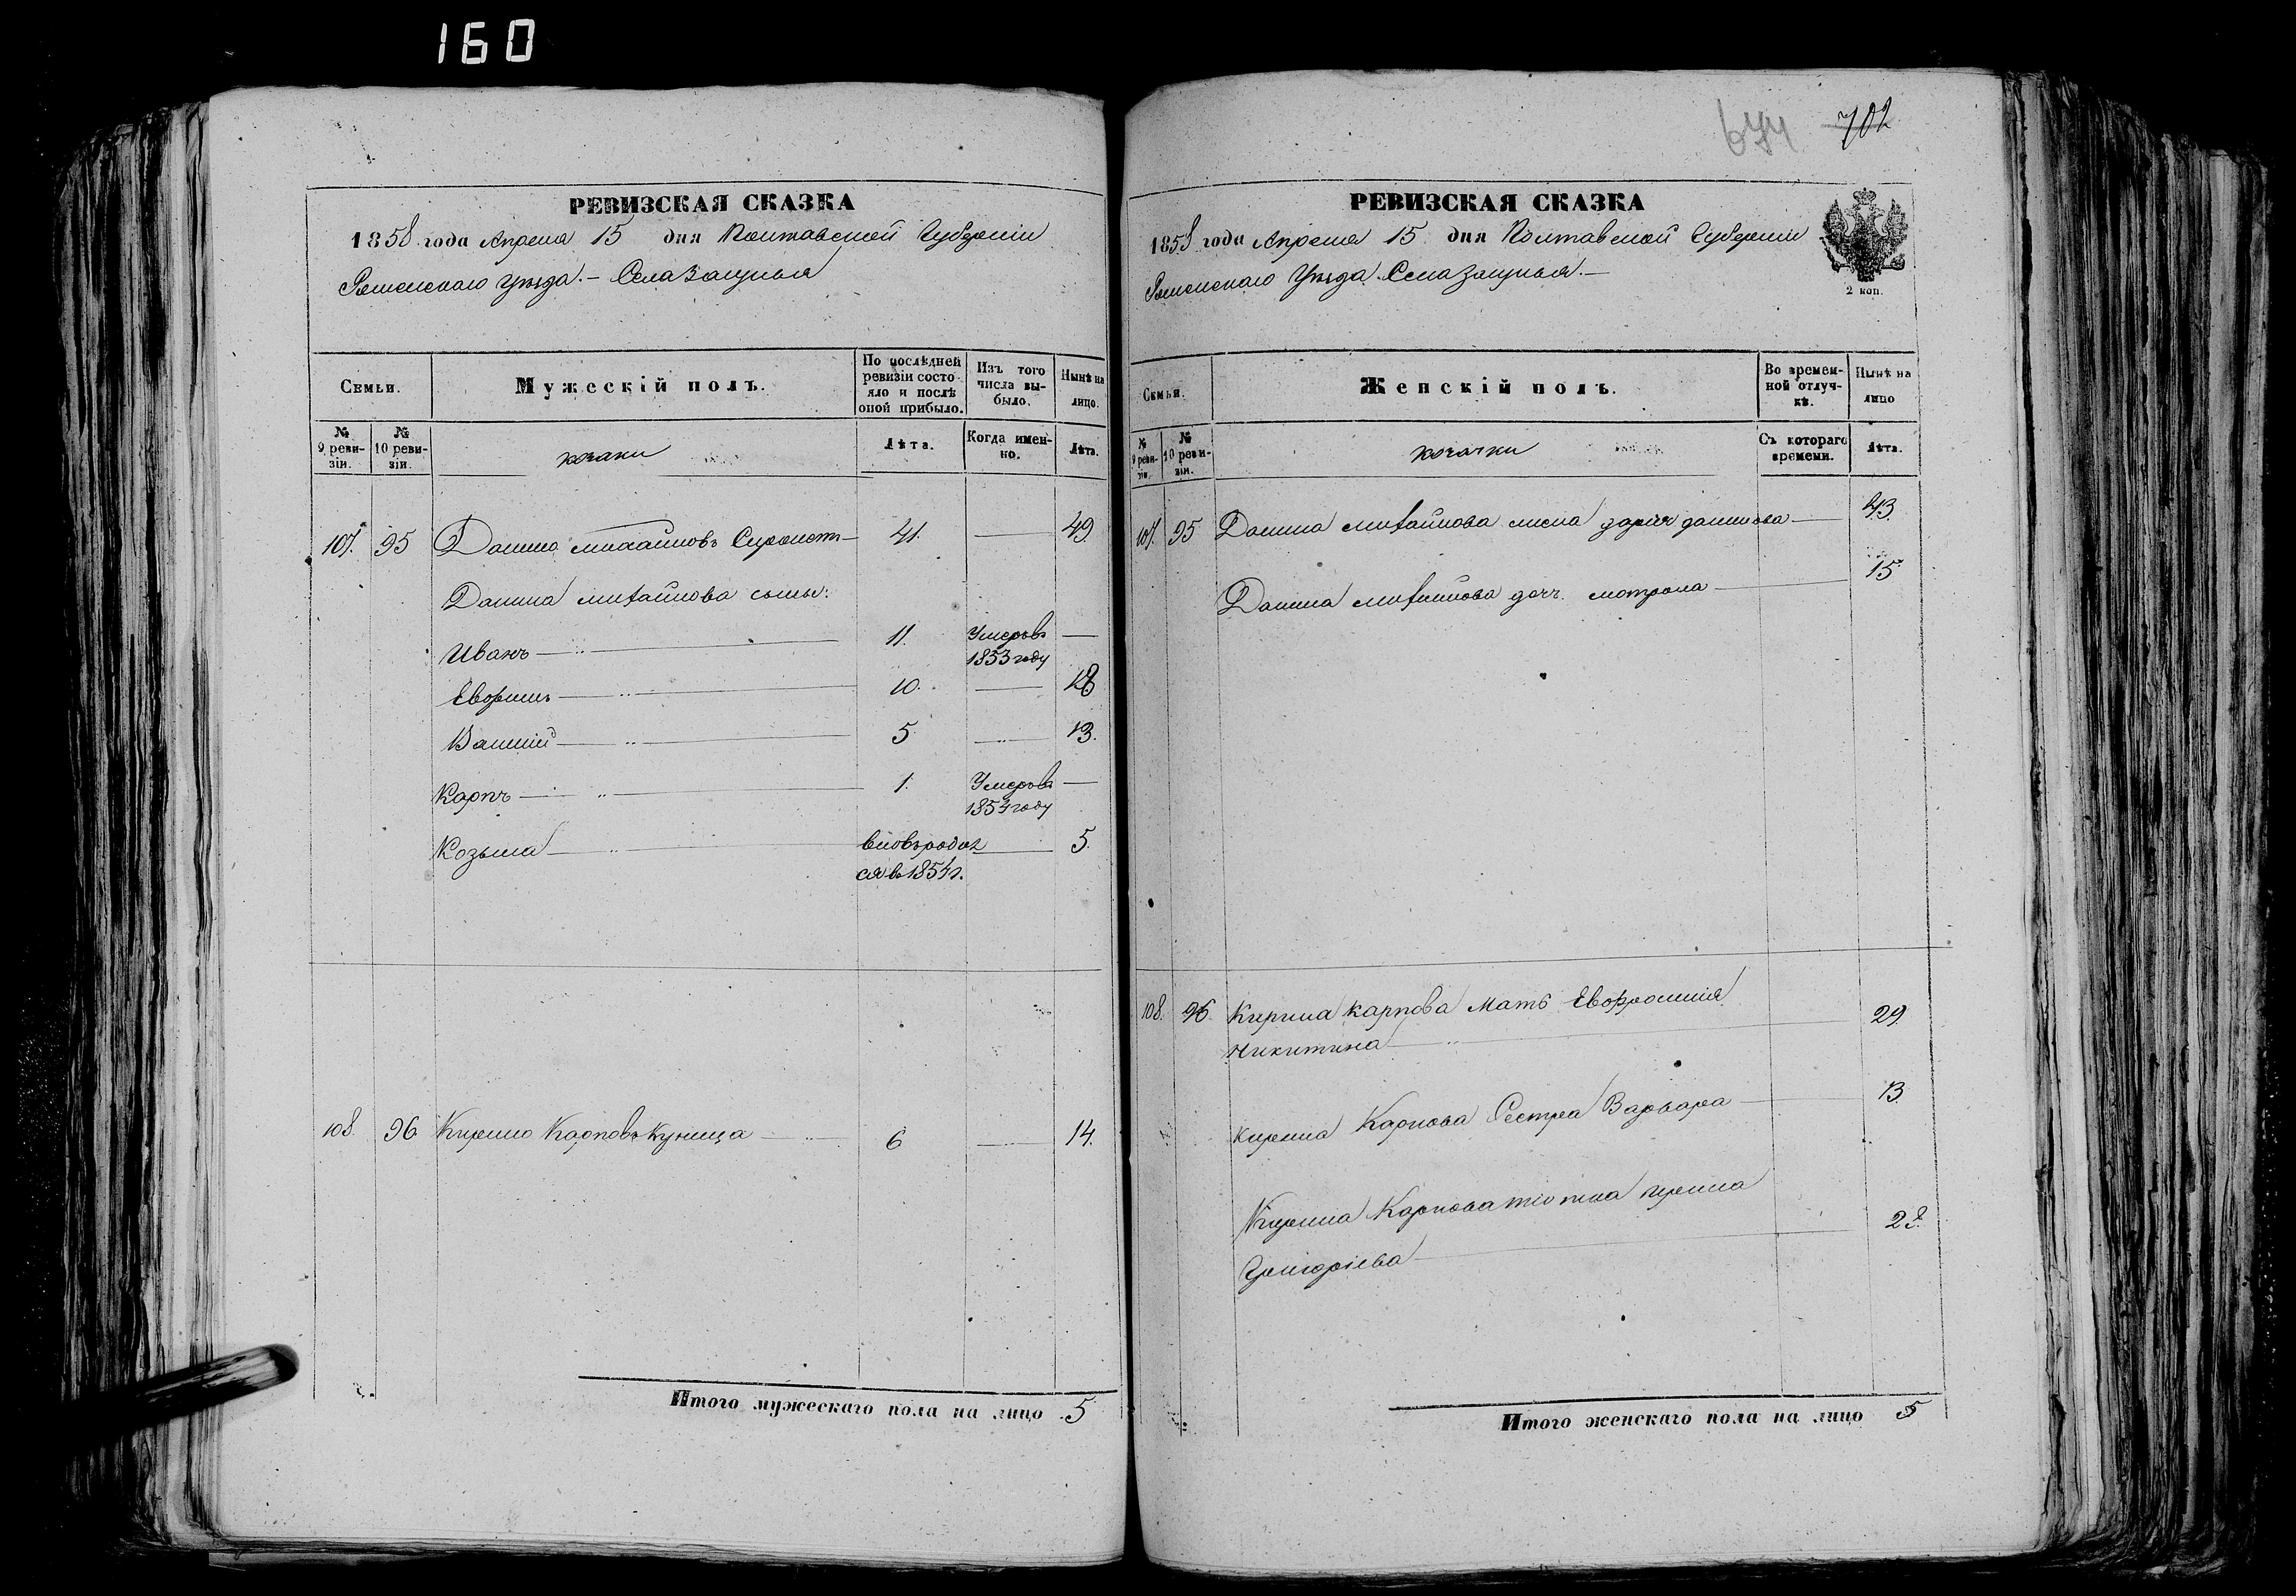 160
РЕВИЗСКАЯ СКАЗКА
1858 года Апреля 15 дня Полтавской Губерніи
Роменскаго Уѣзда. – Села
Семьи.
Мужескій полъ.
По послѣдней ревизіи состояло и послѣ оной прибыло.
Изъ того числа выбыло.
Нынѣ на лицо.
№ 9 ревизіи.
№ 10 ревизіи.
козаки
Лѣта.
Когда именно.
Лѣта.
107. 95 Данило Михайловъ 41. — 49
Данила Михайлова сыны:
Иванъ — 11. Умеръ въ 1853 году —
Евфимъ — 10. — 18
Василій — 5 — 13.
Карпъ — 1. Умеръ въ 1854 году —
Козьма — вновь родился въ 1854 г. — 5.
108. 96 Кирило Карповъ Куница — 6 — 14.
Итого мужескаго пола на лицо 5
674 702
РЕВИЗСКАЯ СКАЗКА
1858 года Апреля 15 дня Полтавской Губерніи
Роменскаго Уѣзда. Села
2 коп.
Семьи.
Женскій полъ.
Во временной отлучкѣ.
Нынѣ на лицо
№ 9 ревизіи.
№ 10 ревизіи.
козачки
Съ котораго времени.
Лѣта.
107. 95 Данила Михайлова жена Дарія Данилова — 43.
Данила Михайлова дочь Мотрона — 15
108. 96. Кирила Карпова Мать Евфросинія
Никитина — 29.
Кирила Карпова Сестра Варвара — 13
Кирила Карпова тіотка Ирина
Григоріева — 28.
Итого женскаго пола на лицо 5